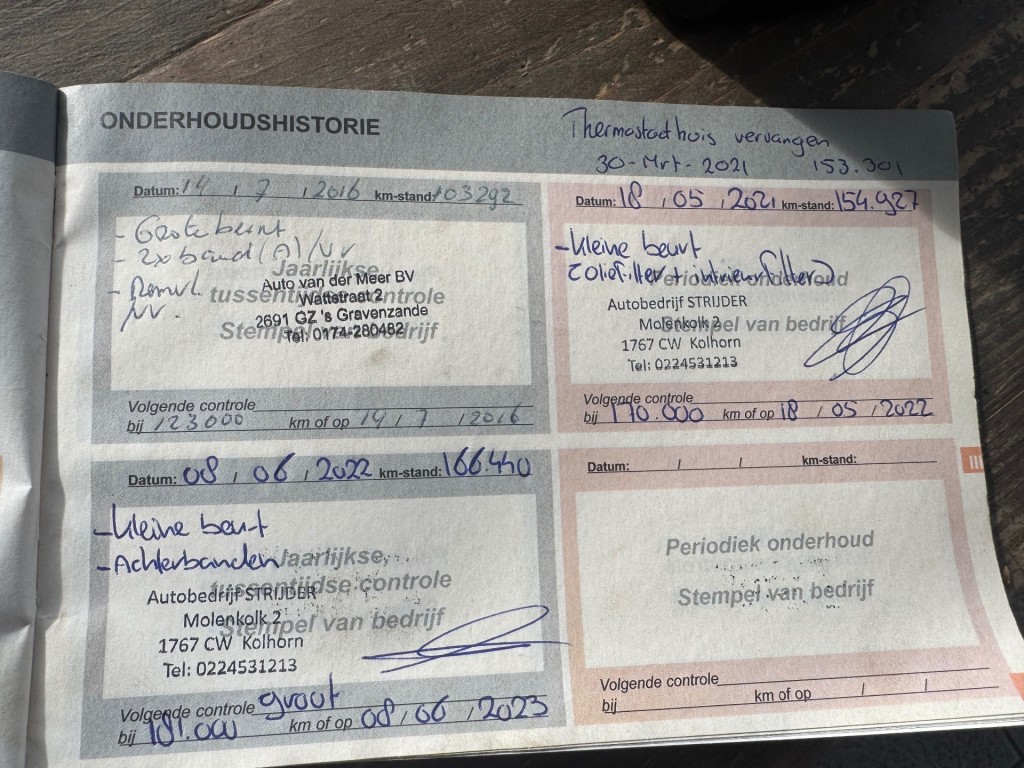 ONDERHOUDSHISTORIE
Thermostadhuis vervangen
30-Mrt-2021 153.301
Datum: 14 / 7 / 2016 km-stand: 103292
- Grote beurt
- 2x band (A) / VV
- Remvl.
VV.
Jaarlijkse,
tussentijdse controle
Stempel van bedrijf
Auto van der Meer BV
Wattstraat 2
2691 GZ 's Gravenzande
Tel: 0174-280482
Volgende controle
bij 123000 km of op 14 / 7 / 2016
Datum: 18 / 05 / 2021 km-stand: 154.927
- Kleine beurt
(oliefilter + intrieurfilter)
Periodiek onderhoud
Stempel van bedrijf
Autobedrijf STRIJDER
Molenkolk 2
1767 CW Kolhorn
Tel: 0224531213
Volgende controle
bij 170.000 km of op 18 / 05 / 2022
Datum: 08 / 06 / 2022 km-stand: 166.440
- Kleine beurt
- Achterbanden
Jaarlijkse,
tussentijdse controle
Stempel van bedrijf
Autobedrijf STRIJDER
Molenkolk 2
1767 CW Kolhorn
Tel: 0224531213
Volgende controle groot
bij 181.000 km of op 08 / 06 / 2023
Datum: / / km-stand:
Periodiek onderhoud
Stempel van bedrijf
Volgende controle
bij km of op / /
III